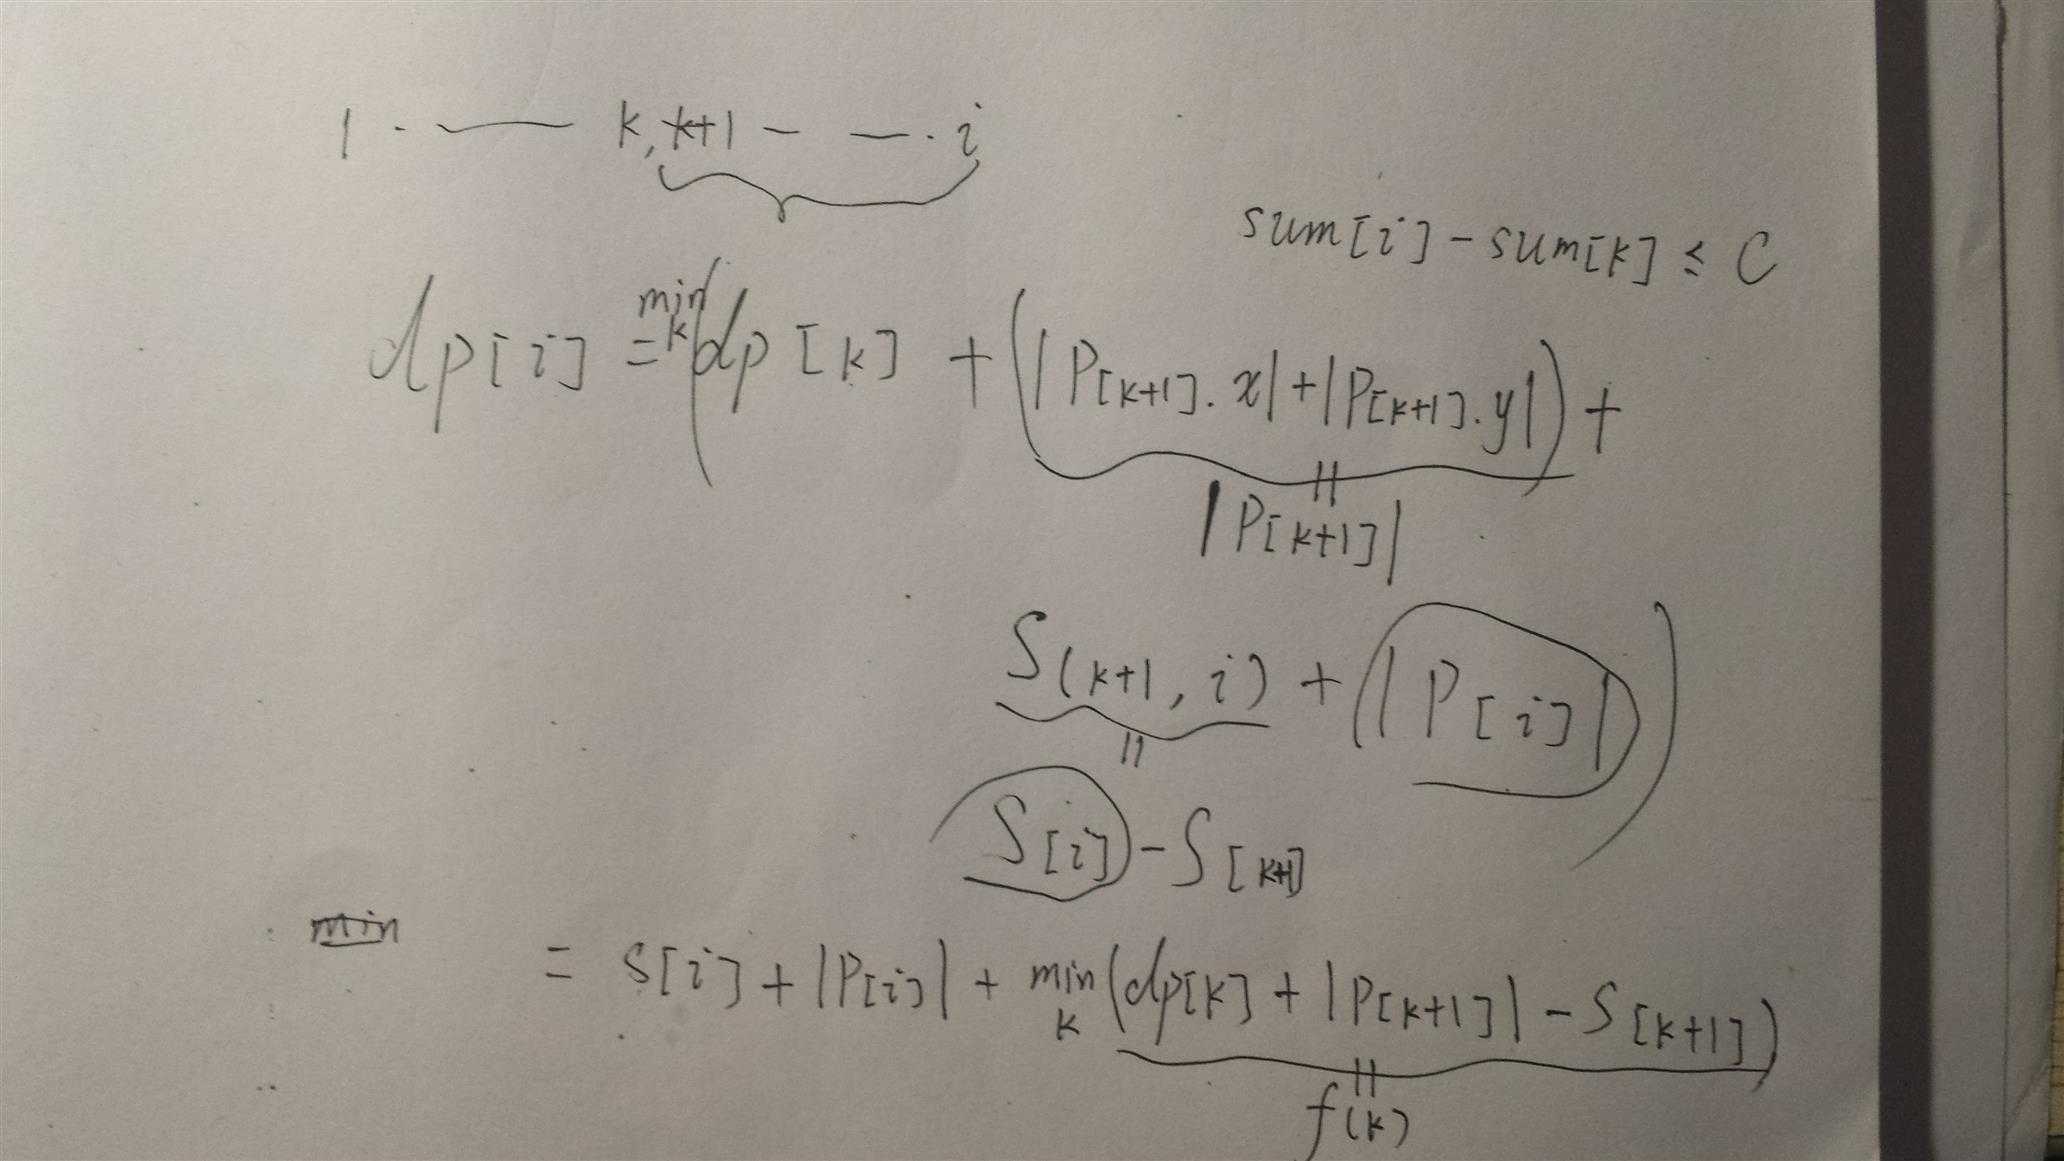 1 · —— k, k+1 — — · i
sum[i] - sum[k] ≤ C
dp[i] = min k (dp[k] + (|P[k+1].x| + |P[k+1].y|) +
||
|P[k+1]|
S(k+1, i) + (|P[i]|)
||
S[i] - S[k+1]
min
= S[i] + |P[i]| + min k (dp[k] + |P[k+1]| - S[k+1])
||
f(k)